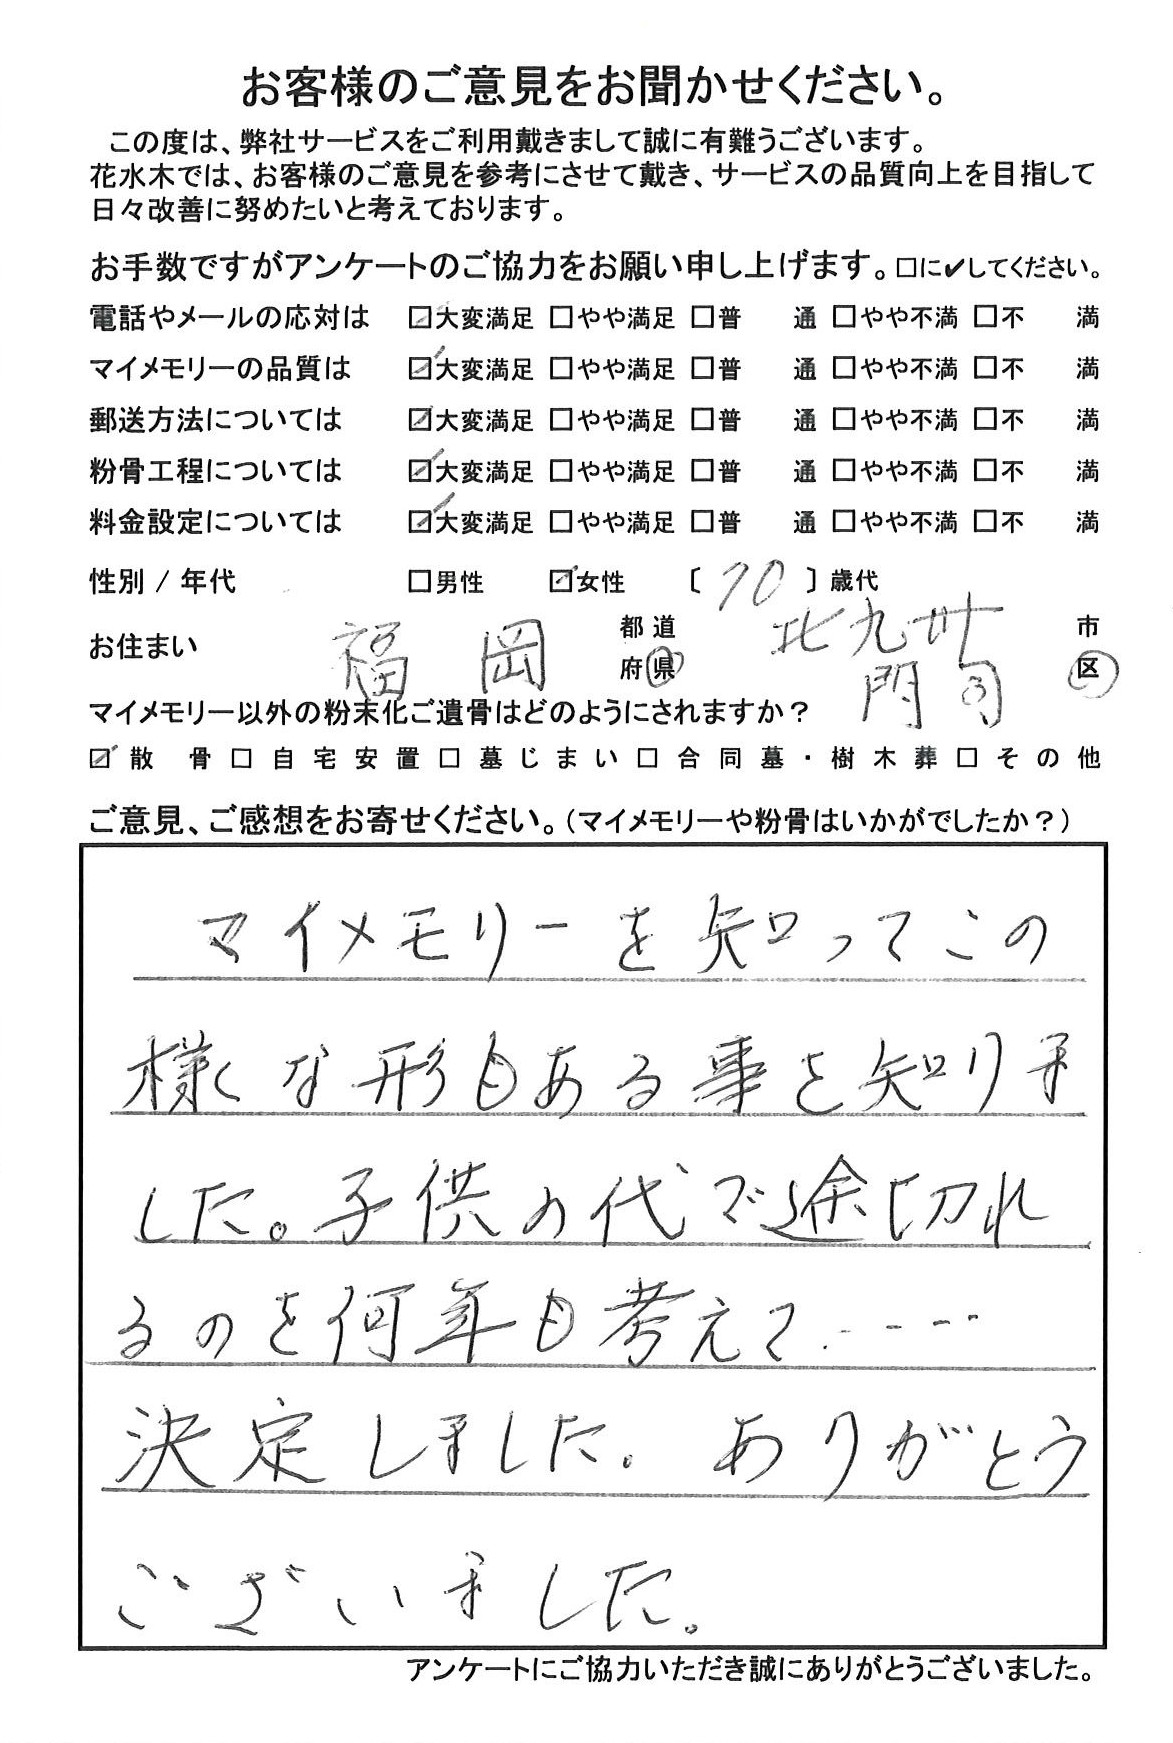 お客様のご意見をお聞かせください。
この度は、弊社サービスをご利用戴きまして誠に有難うございます。
花水木では、お客様のご意見を参考にさせて戴き、サービスの品質向上を目指して
日々改善に努めたいと考えております。
お手数ですがアンケートのご協力をお願い申し上げます。□に✔してください。
電話やメールの応対は ☑大変満足 □やや満足 □普 通 □やや不満 □不 満
マイメモリーの品質は ☑大変満足 □やや満足 □普 通 □やや不満 □不 満
郵送方法については ☑大変満足 □やや満足 □普 通 □やや不満 □不 満
粉骨工程については ☑大変満足 □やや満足 □普 通 □やや不満 □不 満
料金設定については ☑大変満足 □やや満足 □普 通 □やや不満 □不 満
性別 / 年代 □男性 ☑女性 〔 70 〕歳代
お住まい 福岡 都道府県 北九州 市 門司 区
マイメモリー以外の粉末化ご遺骨はどのようにされますか?
☑散 骨 □自宅安置 □墓じまい □合同墓・樹木葬 □その他
ご意見、ご感想をお寄せください。(マイメモリーや粉骨はいかがでしたか?)
マイメモリーを知ってこの
様な形もある事を知りま
した。子供の代で途切れ
るのを何年も考えて・・・・・
決定しました。ありがとう
ございました。
アンケートにご協力いただき誠にありがとうございました。